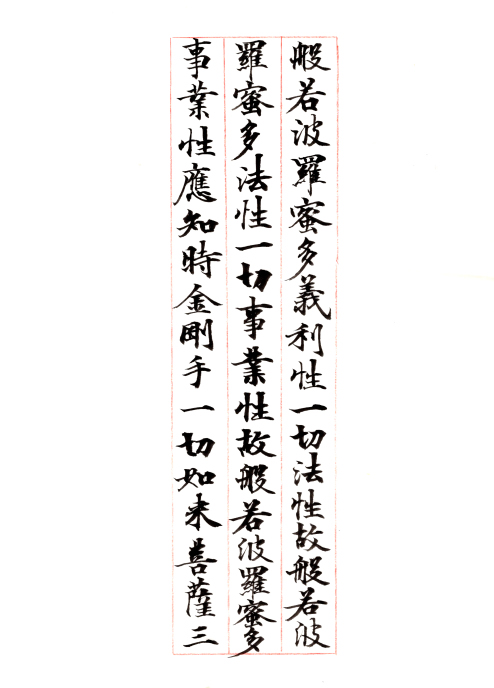 般若波羅蜜多義利性一切法性故般若波
羅蜜多法性一切事業性故般若波羅蜜多
事業性應知時金剛手一切如来菩薩三